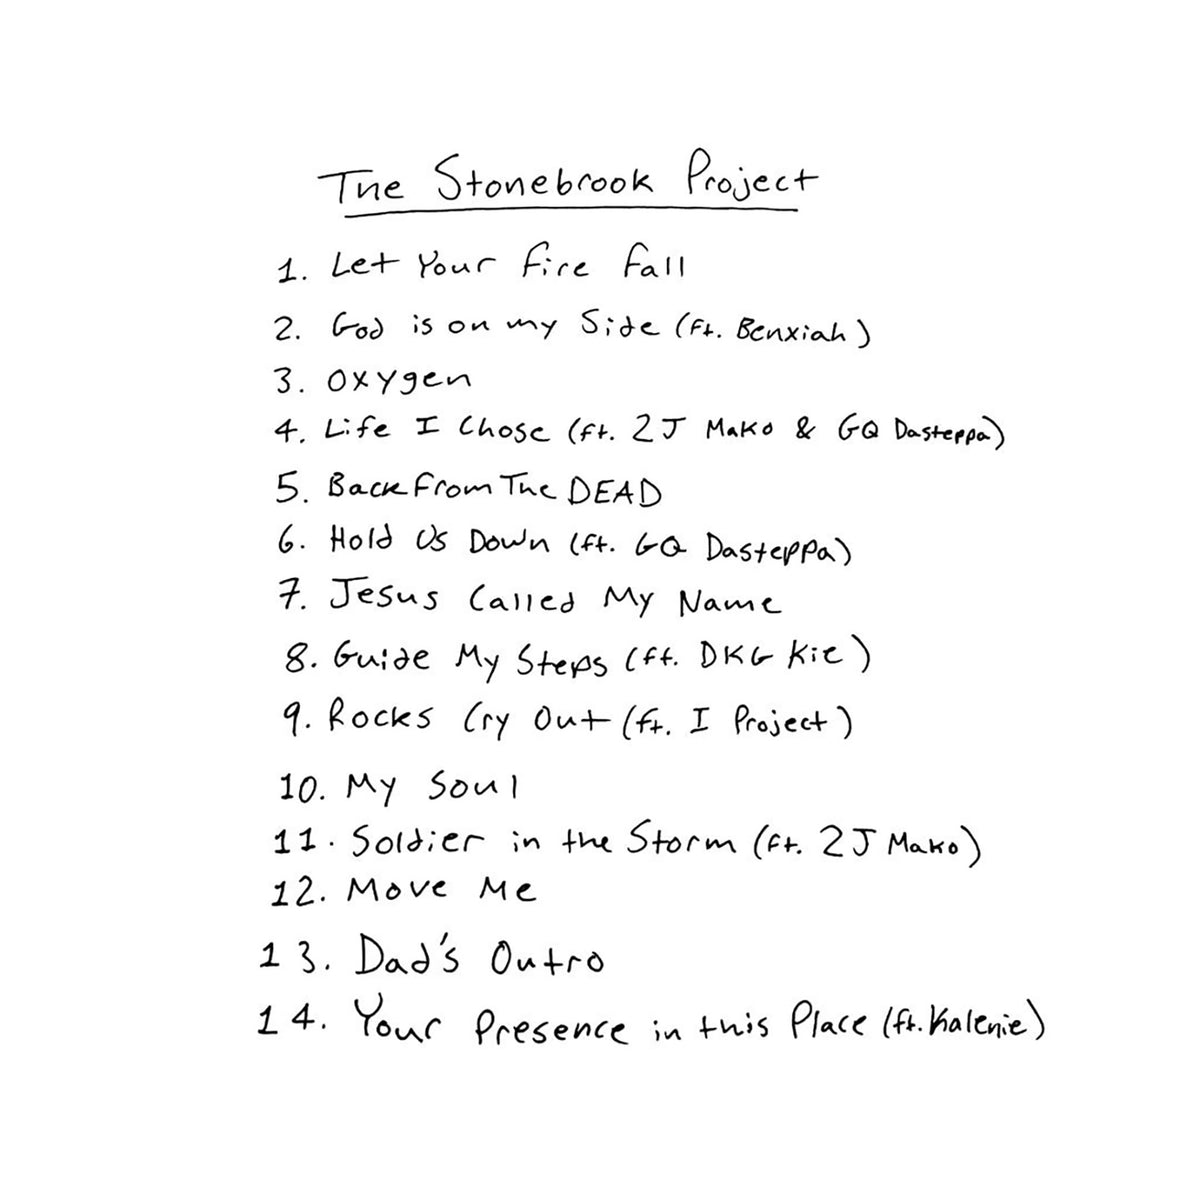 The Stonebrook Project
1. Let Your Fire Fall
2. God is on my Side (ft. Benxiah)
3. Oxygen
4. Life I Chose (ft. 2J Mako & GQ Dasteppa)
5. Back From The DEAD
6. Hold Us Down (ft. GQ Dasteppa)
7. Jesus Called My Name
8. Guide My Steps (ft. DKG Kie)
9. Rocks Cry Out (ft. I Project)
10. My Soul
11. Soldier in the Storm (ft. 2J Mako)
12. Move Me
13. Dad's Outro
14. Your Presence in this Place (ft. Kalenie)